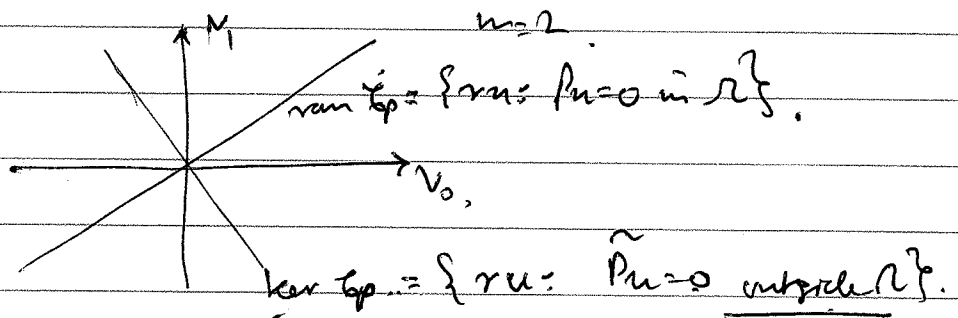 N₁ m=2.
ran 𝒞p = {γu: Pu=0 in Ω}.
N₀,
ker 𝒞p = {γu: P̃u=0 outside Ω}.